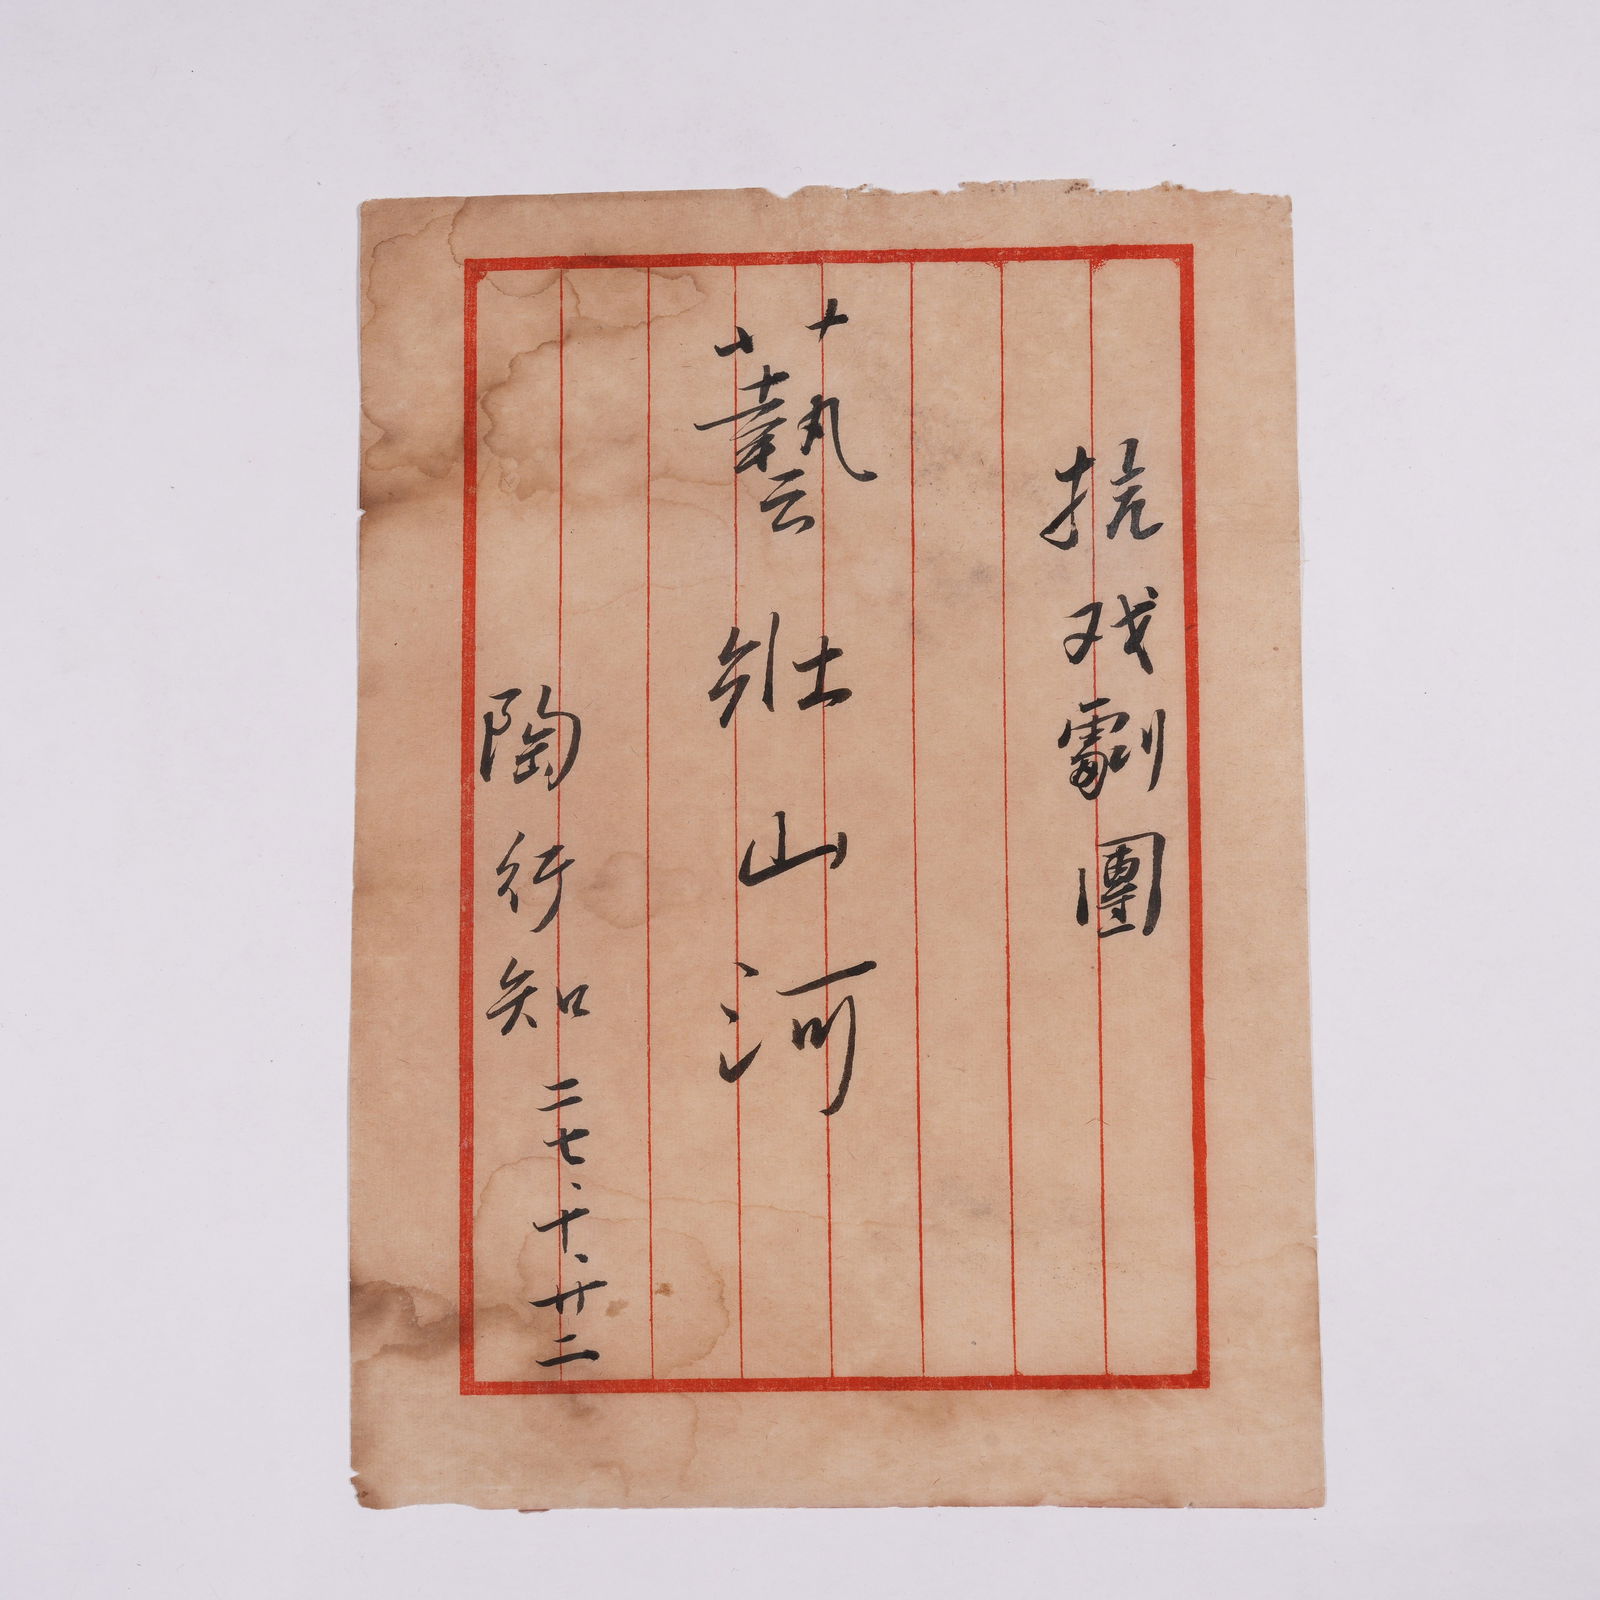 抗戏劇團
藝壯山河
陶行知 二七、十、廿二